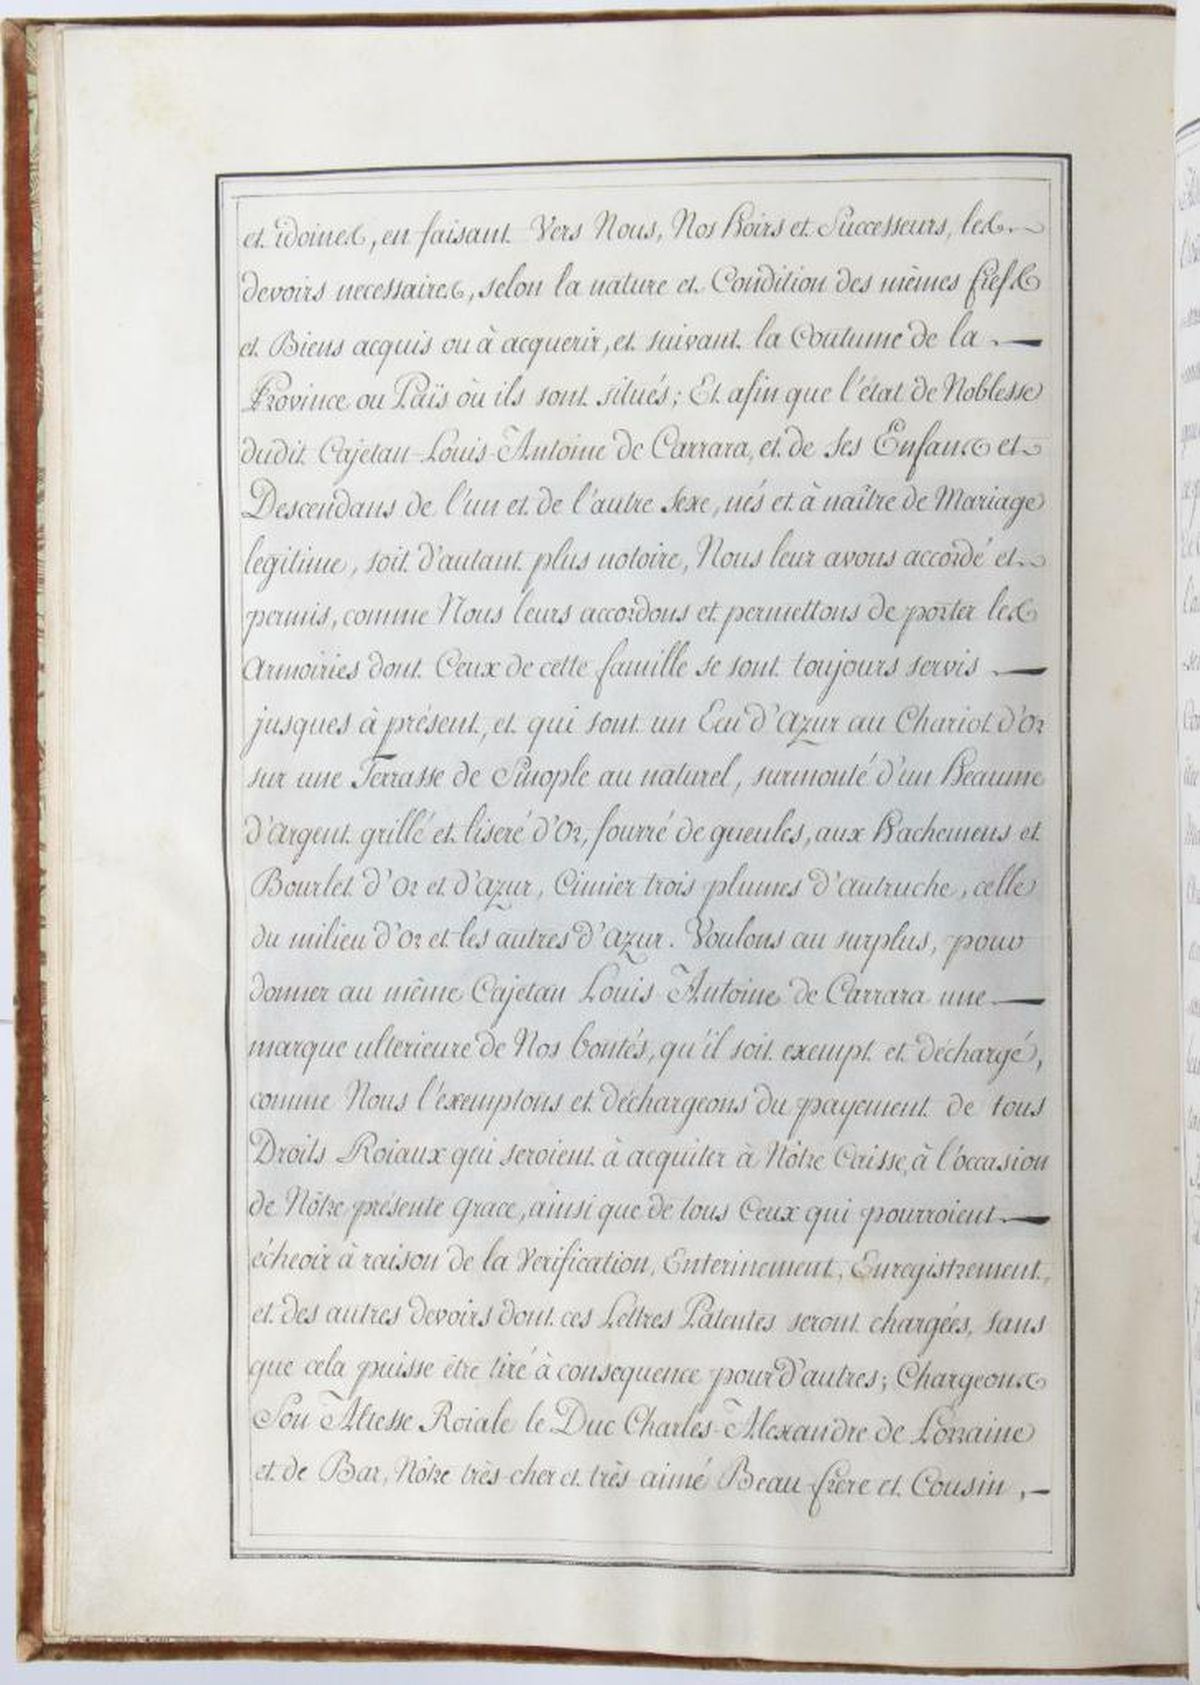 et idoines, en faisant Vers Nous, Nos Hoirs et Successeurs, les
devoirs necessaires, selon la nature et Condition des mêmes fiefs
et Biens acquis ou à acquerir, et suivant la Coutume de la
Province ou Païs où ils sont situés; Et afin que l'état de Noblesse
dudit Cajetan Louis Antoine de Carrara, et de ses Enfans et
Descendans de l'un et de l'autre Sexe, nés et à naître de Mariage
legitime, soit d'autant plus notoire, Nous leur avons accordé et
permis, comme Nous leurs accordons et permettons de porter les
Armoiries dont Ceux de cette famille se sont toujours servis
jusques à présent, et qui sont un Ecu d'Azur au Chariot d'Or
sur une Terrasse de Sinople au naturel, surmonté d'un Heaume
d'Argent grillé et liseré d'Or, fourré de gueules, aux Hachemens et
Bourlet d'Or et d'Azur, Cimier trois plumes d'Autruche, celle
du milieu d'Or et les autres d'Azur. Voulons au surplus, pour
donner au même Cajetan Louis Antoine de Carrara une
marque ulterieure de Nos bontés, qu'il soit exempt et déchargé,
comme Nous l'exemptons et déchargeons du payement de tous
Droits Roiaux qui seroient à acquiter à Nôtre Caisse, à l'occasion
de Nôtre présente grace, ainsi que de tous Ceux qui pourroient
écheoir à raison de la Verification, Enterinement, Enregistrement,
et des autres devoirs dont ces Lettres Patentes seront chargées, sans
que cela puisse être tiré à consequence pour d'autres; Chargeons
Son Altesse Roiale le Duc Charles Alexandre de Lorraine
et de Bar, Nôtre très cher et très aimé Beau frere et Cousin,